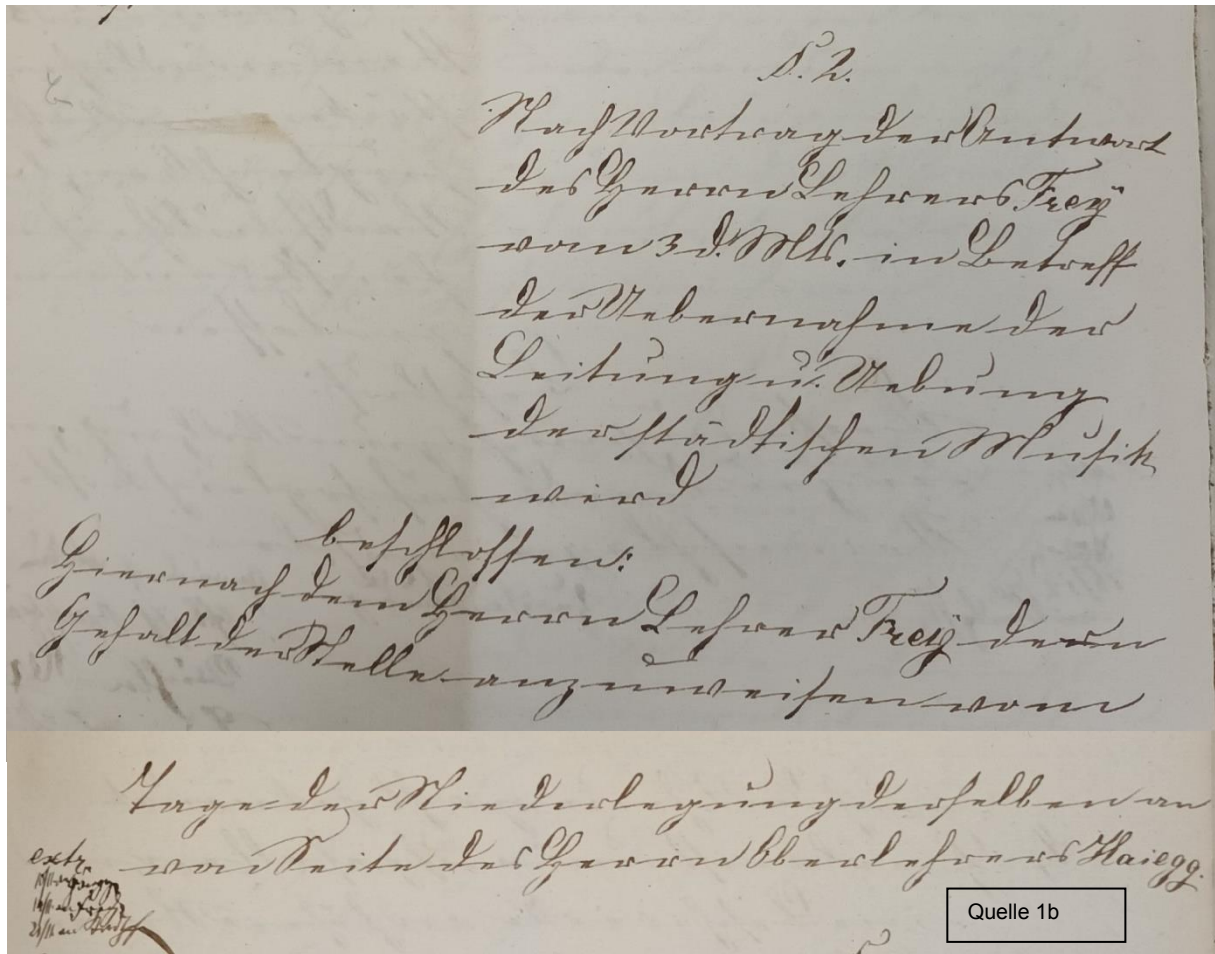 §. 2.
Nach Vortrag der Antwort
des Herrn Lehrers Frey
vom 3 d. Mts. in Betreff
der Uebernahme der
Leitung u. Uebung
der städtischen Musik
wird
beschlossen:
Hiernach dem Herrn Lehrer Frey den
Gehalt der Stelle anzuweisen vom
Tage der Niederlegung derselben an
von Seite des Herrn Oberlehrers Haiegg.
extr.
Quelle 1b